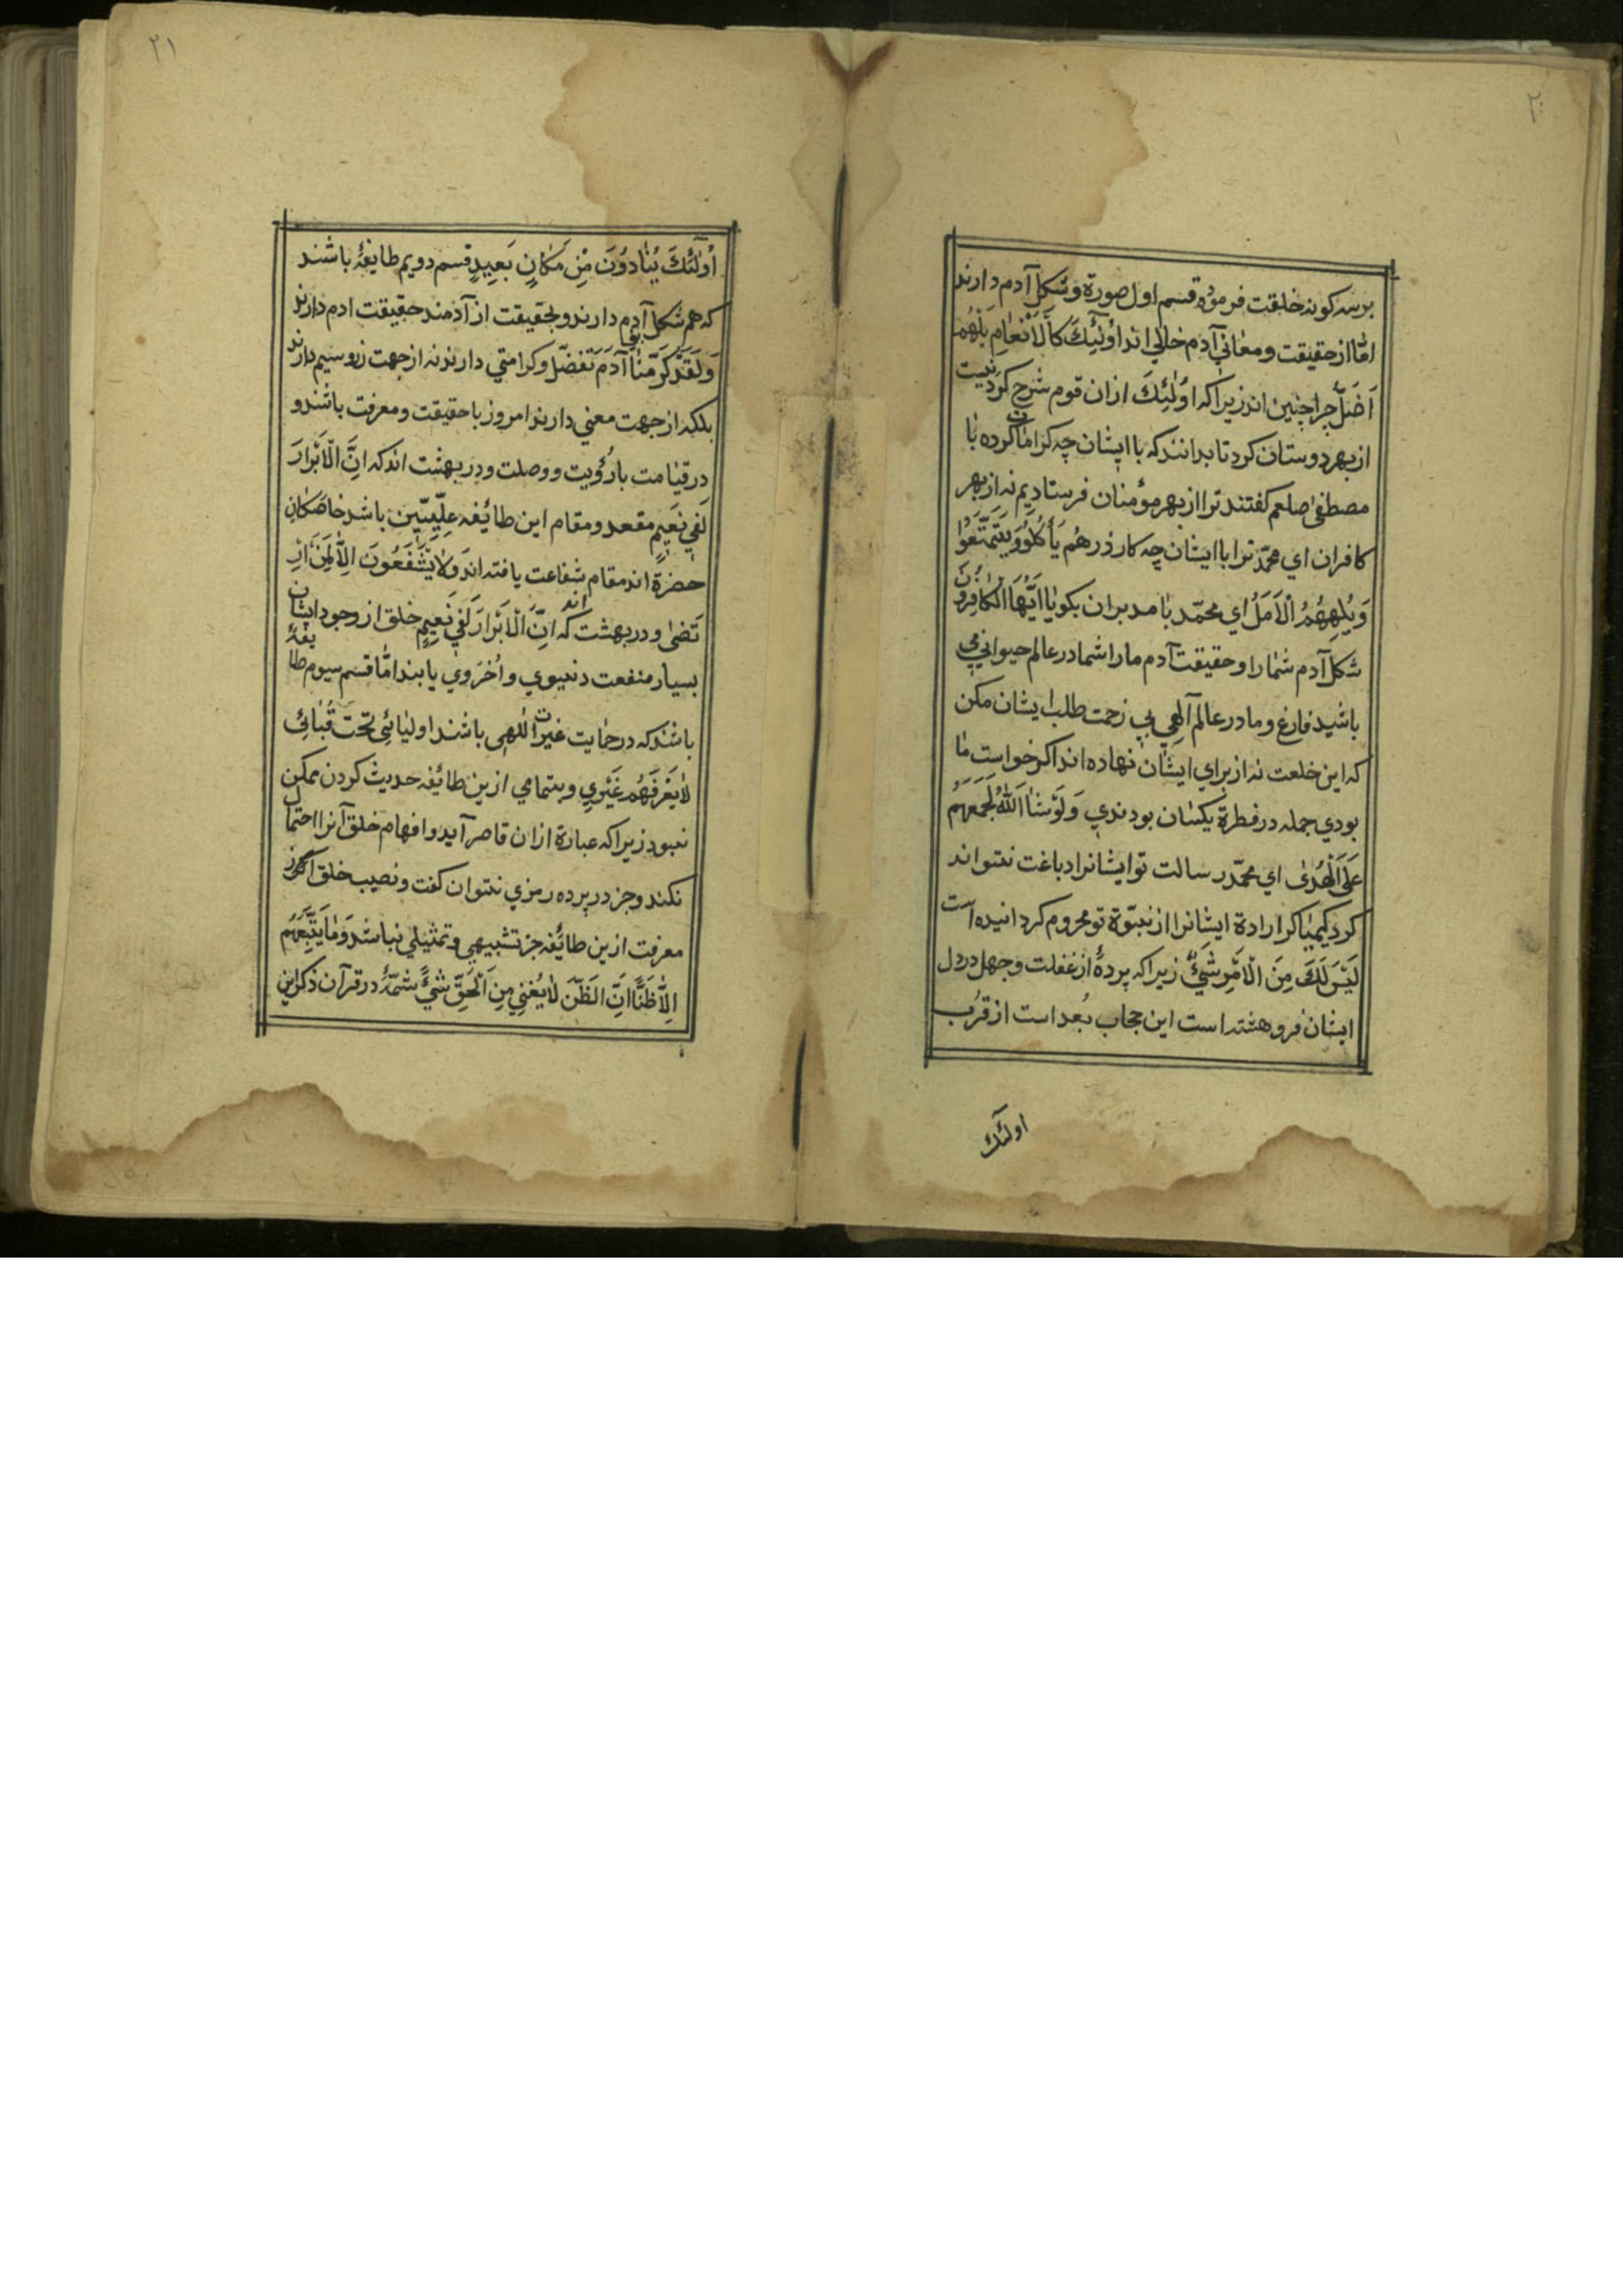 ۲۰
برسه کونه خلقت فرموده قسم اول صورة وشکل آدم دارند
امّا از حقیقت ومعاني آدم خالي اند اُولٰٓئِكَ كَالْاَنْعٰامِ بَلْهُمْ
اَضَلّ چرا چنین اند زیرا که اُولٰئِكَ ازان قوم شرح کردنیست
از بهر دوستان کرد تا بدانند که با ایشان چه کرامات کرده با
مصطفیٰ صلعم کفتند ترا از بهر مؤمنان فرستادیم نه از بهر
کافران اي محمّد ترا با ایشان چه کار ذرهُم يَأْكُلُوْ وَيَتَمَتَّعُوْا
وَيُلهِهُمُ الْاَمَلُ اي محمّد با مدبران بکو یٰا اَيُّهَا الْكٰافِرُوْنَ
شکل آدم شمٰارا وحقیقت آدم مارا شما در عالم حیواني مي
باشید فارغ وما در عالم آلهي بي زحمت طلب ایشان مکن
که این خلعت نه از براي ایشان نهاده اند اکر خواست ما
بودي جمله در فطرة یکسان بودندي وَلَوْ شٰااَللّٰهُ لَجَمَعَهُمْ
عَلَى الْهُدٰى اي محمّد رسالت تو ایشانرا دباغت نتواند
کرد کیمیا کر ارادة ایشانرا از نبوّة تو محروم کردانیده است
لَيْسَ لَكَ مِنَ الْاَمْرِ شَيْءٌ زیرا که پردهٔ از غفلت وجهل در دل
ایشان فرو هشته است این حجاب بُعد است از قُرب
اولٓئك
۲۱
اُولٰٓئِكَ يُنٰادَوْنَ مِنْ مَكٰانٍ بَعِيدٍ قسم دویم طایفهٔ باشند
که هم شکل آدم دارند وبحقیقت از آدمند حقیقت ادم دارند
وَلَقَدْ كَرَّمْنٰا بَنِي آدَمَ تفضّل وکرامتي دارند نه از جهت زر وسیم دارند
بلکه از جهت معني دارند امروز با حقیقت ومعرفت باشند و
در قیٰامت با رؤیت ووصلت ودر بهشت اند که اِنَّ الْاَبْرَارَ
لَفِي نَعِيمٍ مقعد ومقام این طائیفه عِلّيّين باشد خاصکان
حضرة اند مقام شفاعت یافته اند وَلاٰ يَشْفَعُونَ اِلاّٰ لِمَنَ ارْ
تَضىٰ ودر بهشت اند که اِنّ الْاَبْرارَ لَفِي نَعِيمٍ خلق از وجود ایشان
بسیار منفعت دنیوي واُخرَوي یابند امّا قسم سیوم طایفهٔ
باشند که در حمایت غیرت اللهی باشند اولیٰائي تحت قُبٰائي
لاٰيَعْرِفَهُمْ غَيْرِي وبتمامي ازین طائیفه حدیث کردن ممکن
نبود زیرا که عبارة ازان قاصر آید وافهام خلق آنرا احتمال
نکند وجز در پرده رمزي نتوان کفت ونصیب خلق اکرز
معرفت ازین طائیفه جز تشبیهي وتمثیلي نباشد وَمٰا يَتَّبِعُهُم
اِلاّٰ ظَنّاً اِنَّ الظَّنَّ لاٰيُغْنِي مِنَ الْحَقِّ شَيْئً شمّهٔ در قرآن ذکر این